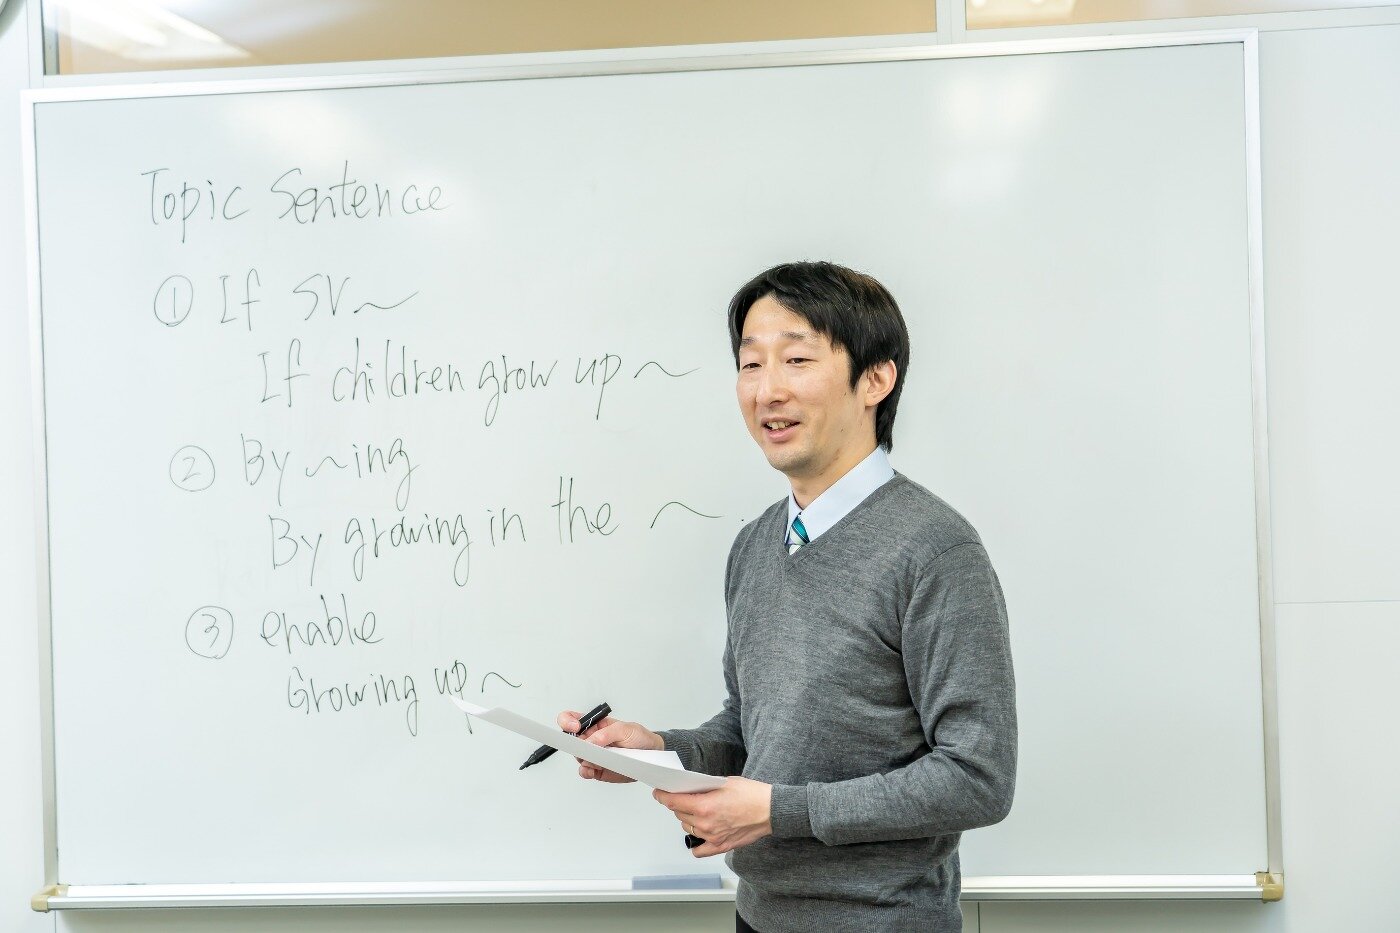 Topic Sentence
① If SV～
If children grow up～
② By～ing
By growing in the ～
③ enable
Growing up～